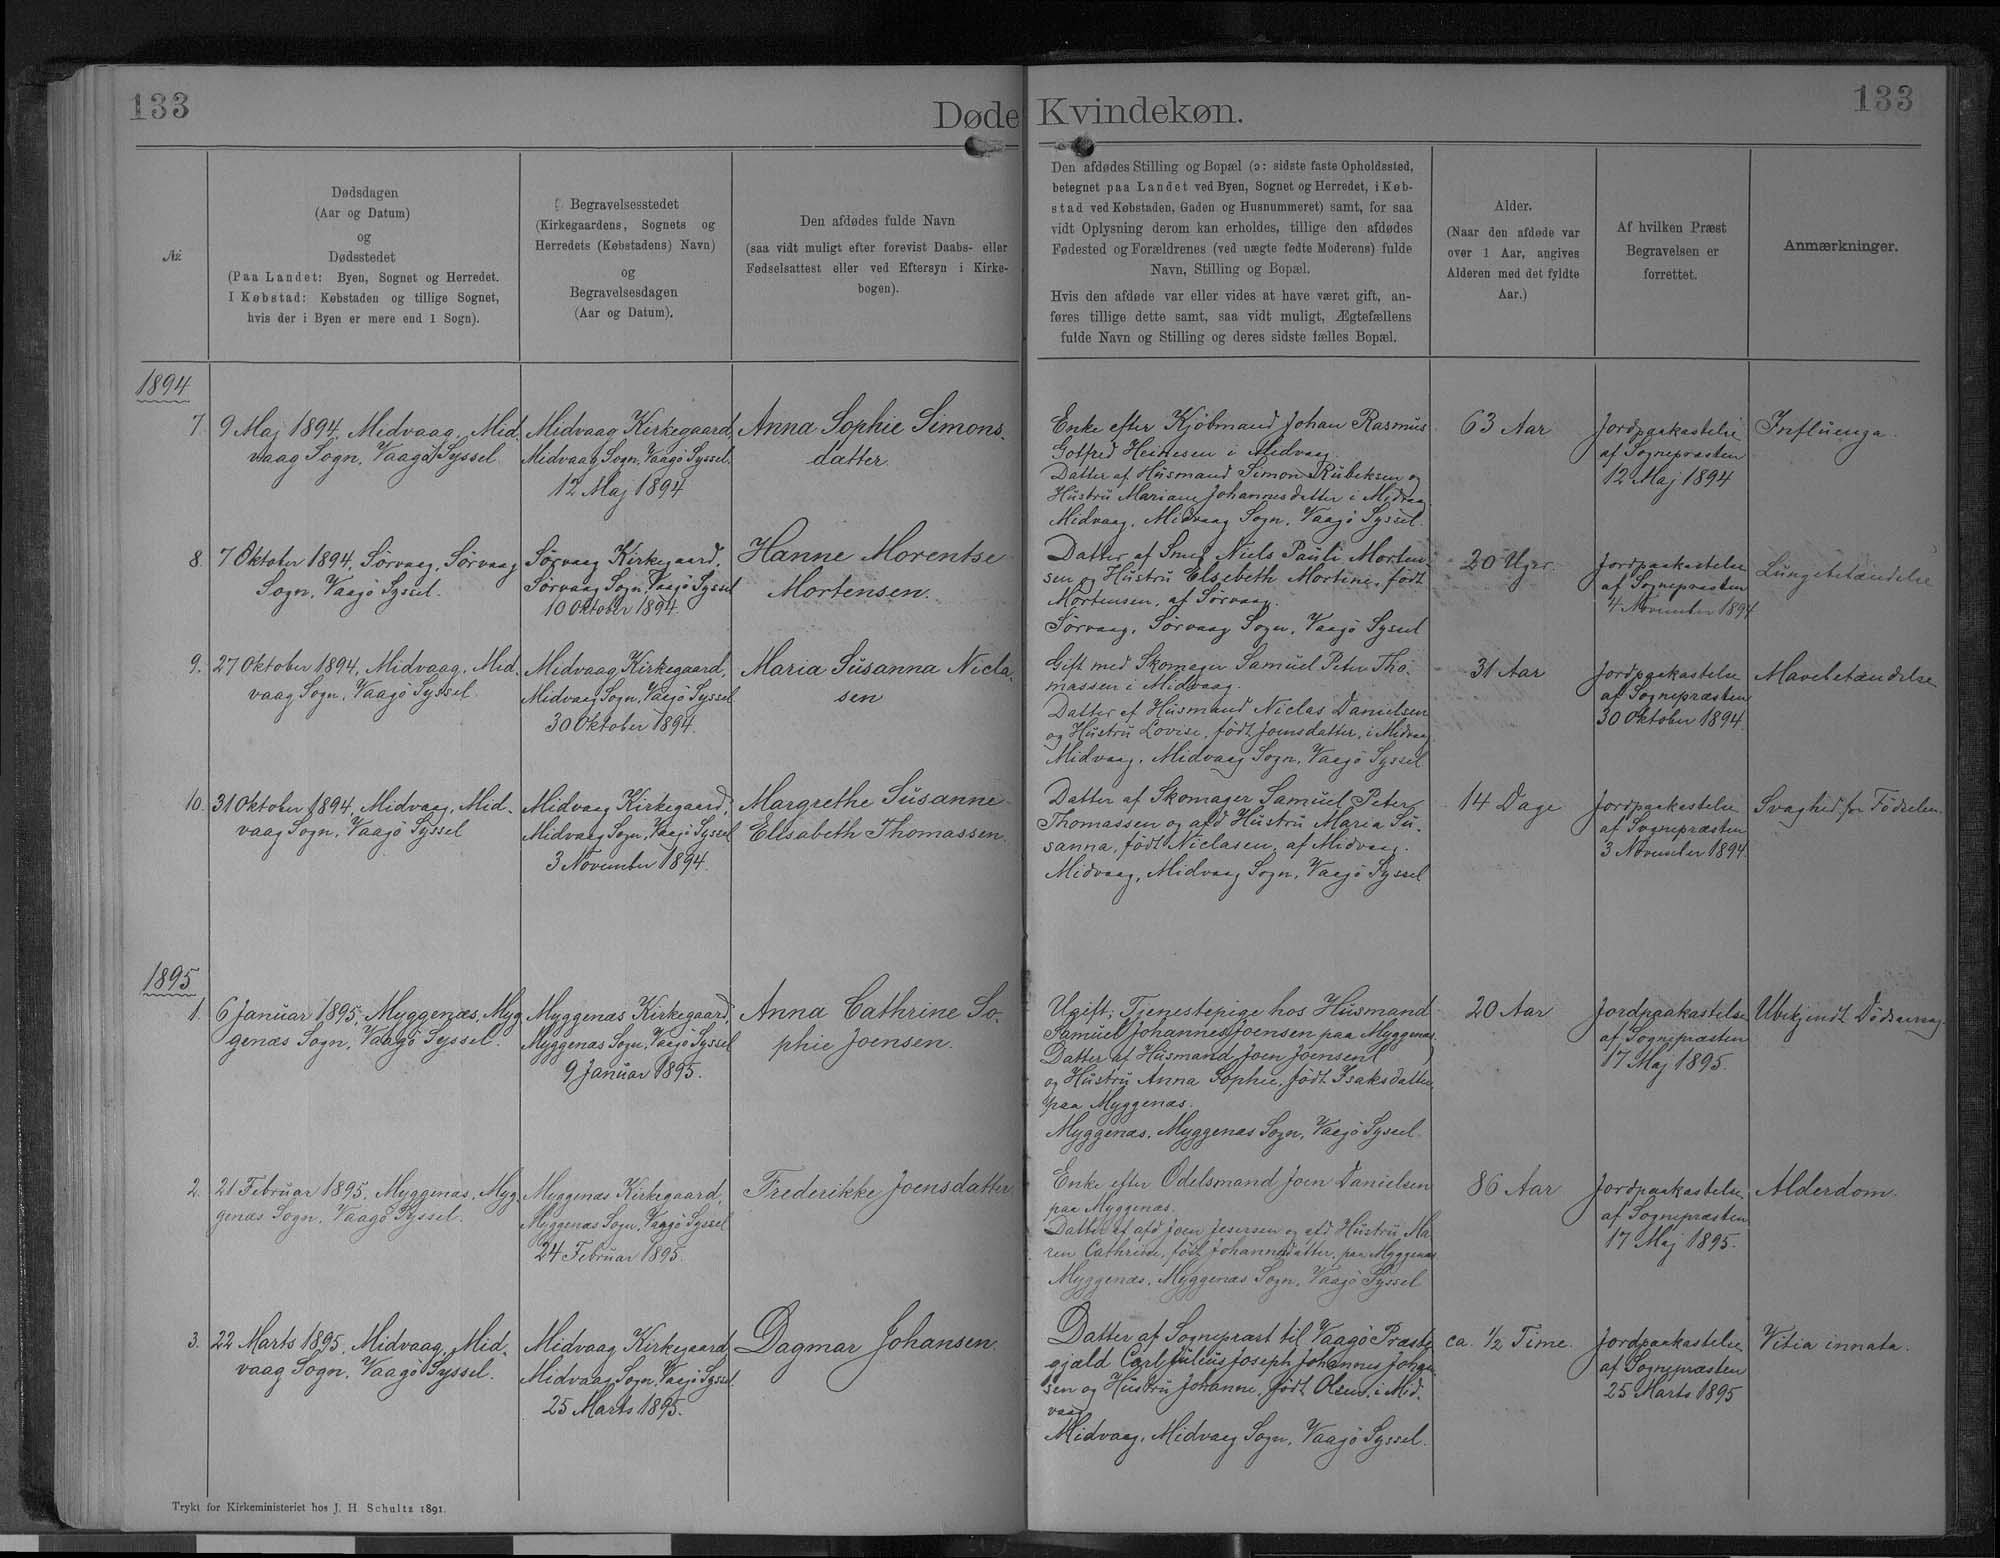 133
Døde Kvindekøn.
133
№
Dødsdagen
(Aar og Datum)
og
Dødsstedet
(Paa Landet: Byen, Sognet og Herredet.
I Købstad: Købstaden og tillige Sognet,
hvis der i Byen er mere end 1 Sogn).
Begravelsesstedet
(Kirkegaardens, Sognets og
Herredets (Købstadens) Navn)
og
Begravelsesdagen
(Aar og Datum).
Den afdødes fulde Navn
(saa vidt muligt efter forevist Daabs- eller
Fødselsattest eller ved Eftersyn i Kirke-
bogen).
Den afdødes Stilling og Bopæl (ɔ: sidste faste Opholdssted,
betegnet paa Landet ved Byen, Sognet og Herredet, i Køb-
stad ved Købstaden, Gaden og Husnummeret) samt, for saa
vidt Oplysning derom kan erholdes, tillige den afdødes
Fødested og Forældrenes (ved uægte fødte Moderens) fulde
Navn, Stilling og Bopæl.
Hvis den afdøde var eller vides at have været gift, an-
føres tillige dette samt, saa vidt muligt, Ægtefællens
fulde Navn og Stilling og deres sidste fælles Bopæl.
Alder.
(Naar den afdøde var
over 1 Aar, angives
Alderen med det fyldte
Aar.)
Af hvilken Præst
Begravelsen er
forrettet.
Anmærkninger.
1894
7.
9 Maj 1894, Midvaag, Mid-
vaag Sogn, Vaagø Syssel.
Midvaag Kirkegaard,
Midvaag Sogn, Vaagø Syssel.
12 Maj 1894
Anna Sophie Simons-
datter.
Enke efter Kjöbmand Johan Rasmus
Gotfred Heinesen i Midvaag.
Datter af Husmand Simon Rubeksen og
Hustru Mariane Johannesdatter i Midvaag
Midvaag, Midvaag Sogn, Vaagø Syssel.
63 Aar
Jordpaakastelse
af Sognepræsten
12 Maj 1894
Influenza.
8.
7 Oktober 1894, Sørvaag, Sørvaag
Sogn, Vaagø Syssel.
Sørvaag Kirkegaard,
Sørvaag Sogn, Vaagø Syssel
10 Oktober 1894.
Hanne Morentse
Mortensen.
Datter af Smed Niels Pauli Morten-
sen og Hustru Elsebeth Mortine, født
Mortensen, af Sørvaag.
Sørvaag, Sørvaag Sogn, Vaagø Syssel
20 Uger.
Jordpaakastelse
af Sognepræsten
4 November 1894
Lungebetændelse
9.
27 Oktober 1894, Midvaag, Mid-
vaag Sogn, Vaagø Syssel.
Midvaag Kirkegaard,
Midvaag Sogn, Vaagø Syssel
30 Oktober 1894.
Maria Susanna Nicla-
sen
Gift med Skomager Samuel Peter Tho-
massen i Midvaag.
Datter af Husmand Niclas Danielsen
og Hustru Lovise, født Joensdatter, i Midvaag
Midvaag, Midvaag Sogn, Vaagø Syssel
31 Aar
Jordpaakastelse
af Sognepræsten
30 Oktober 1894.
Mavebetændelse
10.
31 Oktober 1894, Midvaag, Mid-
vaag Sogn, Vaagø Syssel
Midvaag Kirkegaard,
Midvaag Sogn, Vaagø Syssel
3 November 1894.
Margrethe Susanne
Ellsabeth Thomassen.
Datter af Skomager Samuel Peter
Thomassen og afd Hustru Maria Su-
sanna, født Niclasen, af Midvaag.
Midvaag, Midvaag Sogn, Vaagø Syssel
14 Dage
Jordpaakastelse
af Sognepræsten
3 November 1894.
Svaghed fr Fødselen.
1895
1.
6 Januar 1895, Myggenæs, Myg-
genæs Sogn, Vaagø Syssel.
Myggenæs Kirkegaard,
Myggenæs Sogn, Vaagø Syssel
9 Januar 1895.
Anna Cathrine So-
phie Joensen.
Ugift; Tjenestepige hos Husmand
Samuel Johannes Joensen paa Myggenæs.
Datter af Husmand Joen Joensen ( )
og Hustru Anna Sophie, født Isaksdatter,
paa Myggenæs.
Myggenæs, Myggenæs Sogn, Vaagø Syssel.
20 Aar
Jordpaakastelse
af Sognepræsten
17 Maj 1895.
Ubekjendt Dødsaarsag.
2.
21 Februar 1895, Myggenæs, Myg-
genæs Sogn, Vaagø Syssel.
Myggenæs Kirkegaard,
Myggenæs Sogn, Vaagø Syssel
24 Februar 1895.
Frederikke Joensdatter
Enke efter Odelsmand Joen Danielsen
paa Myggenæs.
Datter af afd Joen Jesersen og afd Hustru Ma-
ren Cathrine, født Johannesdatter, paa Myggenæs
Myggenæs, Myggenæs Sogn, Vaagø Syssel
86 Aar
Jordpaakastelse
af Sognepræsten
17 Maj 1895.
Alderdom.
3.
22 Marts 1895, Midvaag, Mid-
vaag Sogn, Vaagø Syssel.
Midvaag Kirkegaard
Midvaag Sogn, Vaagø Syssel.
25 Marts 1895.
Dagmar Johansen.
Datter af Sognepræst til Vaagø Præste-
gjæld Carl Julius Joseph Johannes Johan-
sen og Hustru Johanne, født Olsen, i Mid-
vaag
Midvaag, Midvaag Sogn, Vaagø Syssel.
ca. 1/2 Time.
Jordpaakastelse
af Sognepræsten
25 Marts 1895
Vitia innata.
Trykt for Kirkeministeriet hos J. H. Schultz 1891.